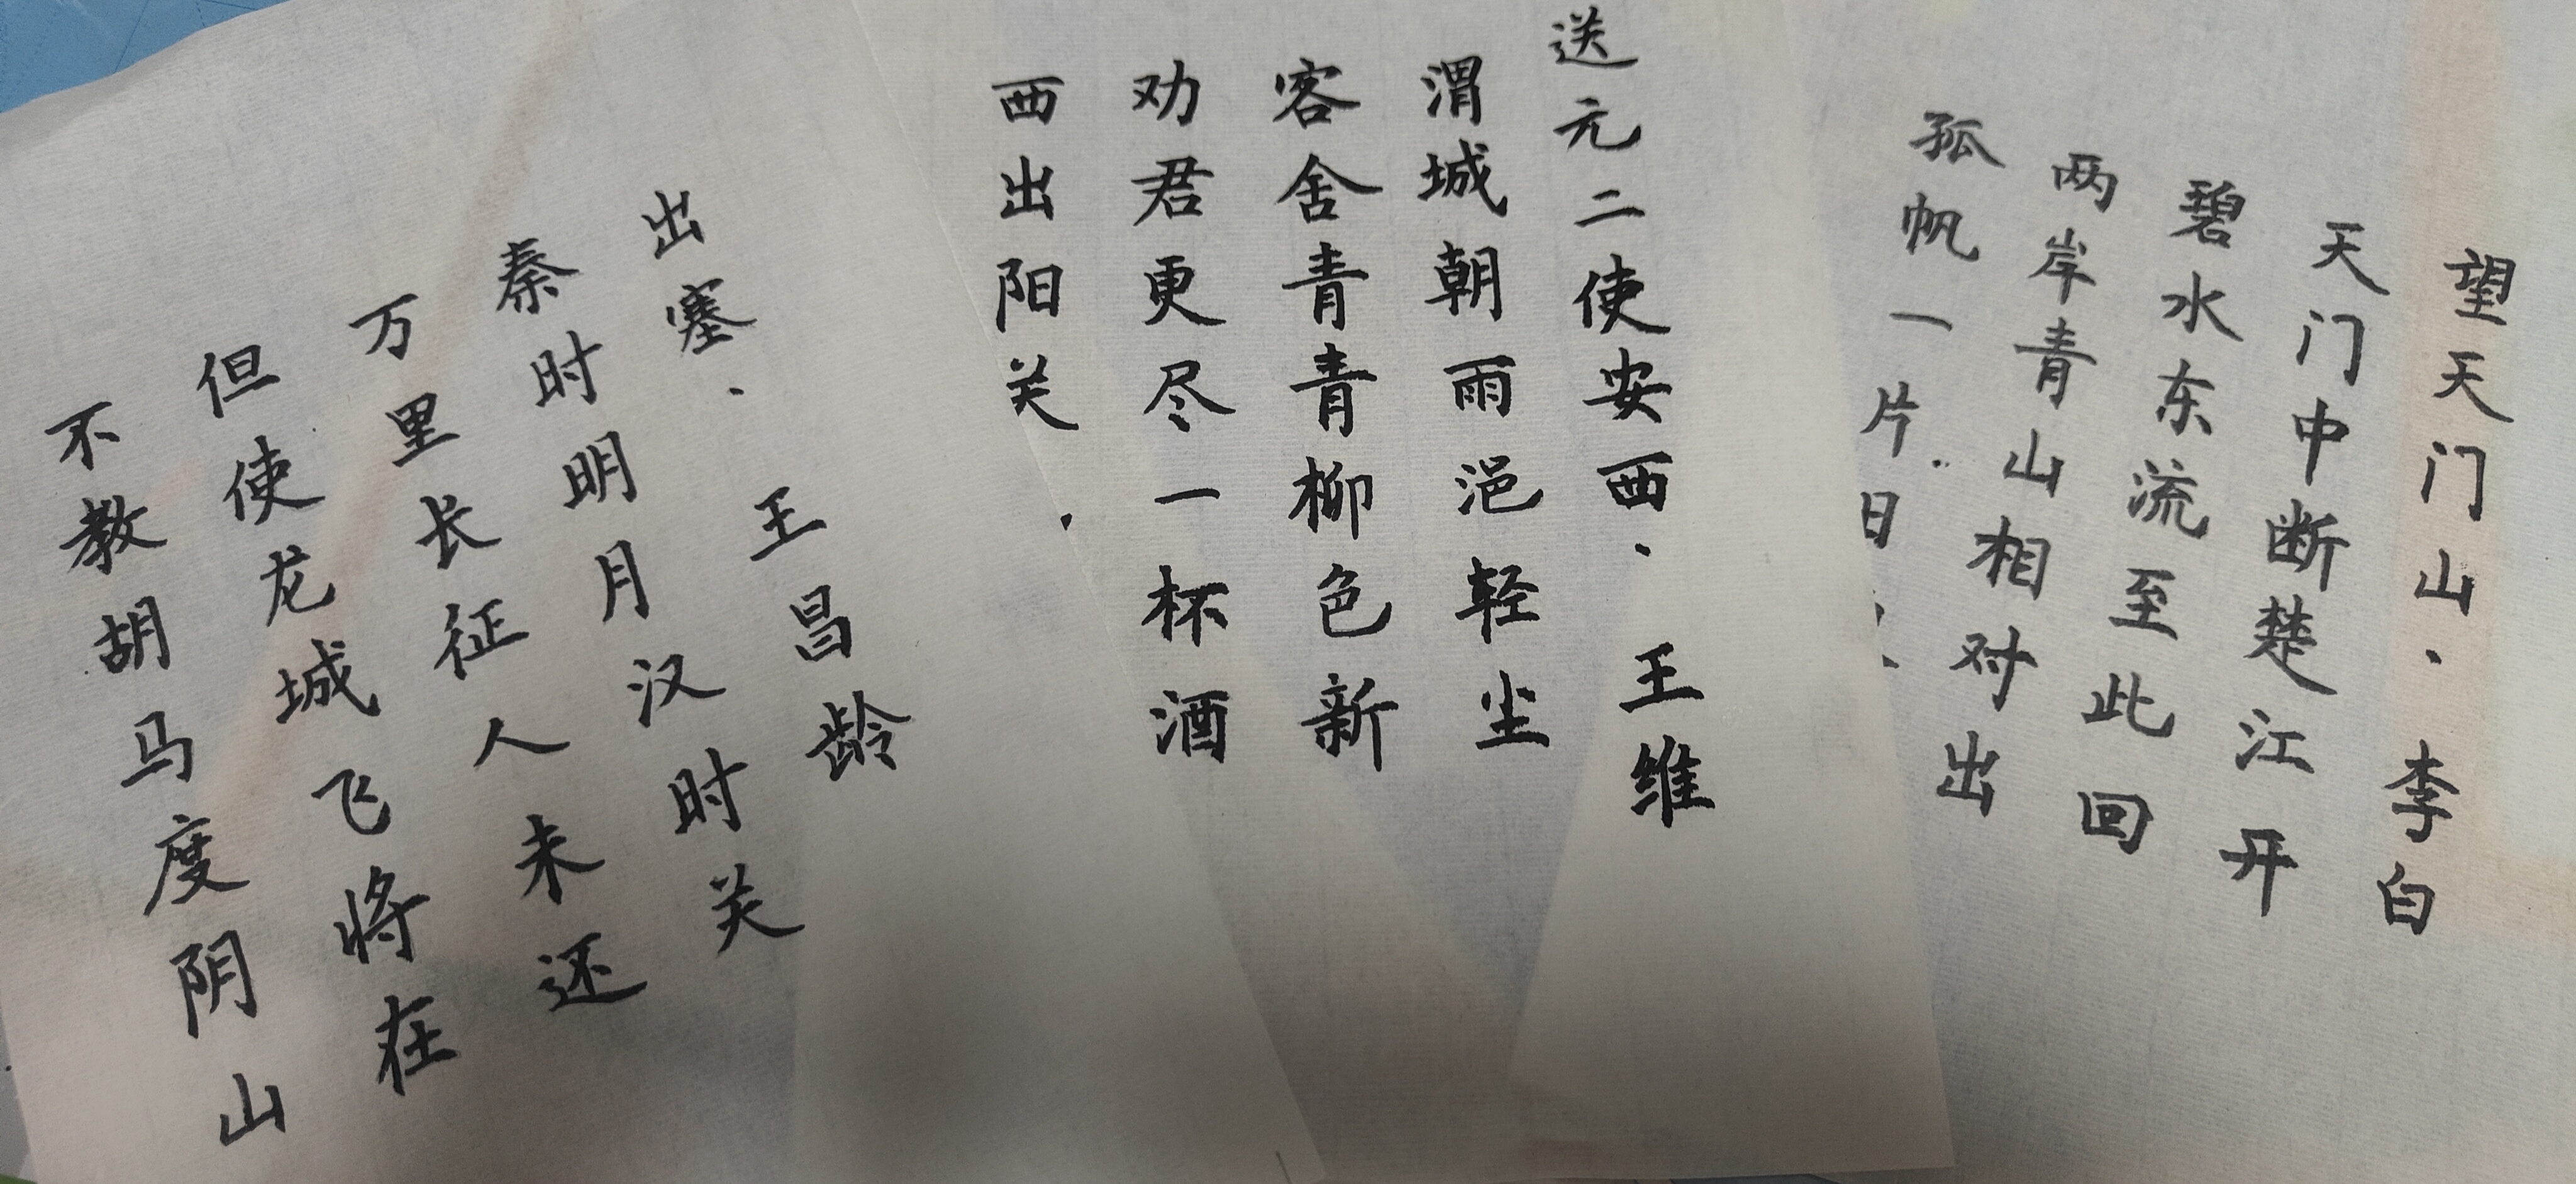 望天门山·李白
天门中断楚江开
碧水东流至此回
两岸青山相对出
孤帆一片日
送元二使安西·王维
渭城朝雨浥轻尘
客舍青青柳色新
劝君更尽一杯酒
西出阳关
出塞·王昌龄
秦时明月汉时关
万里长征人未还
但使龙城飞将在
不教胡马度阴山